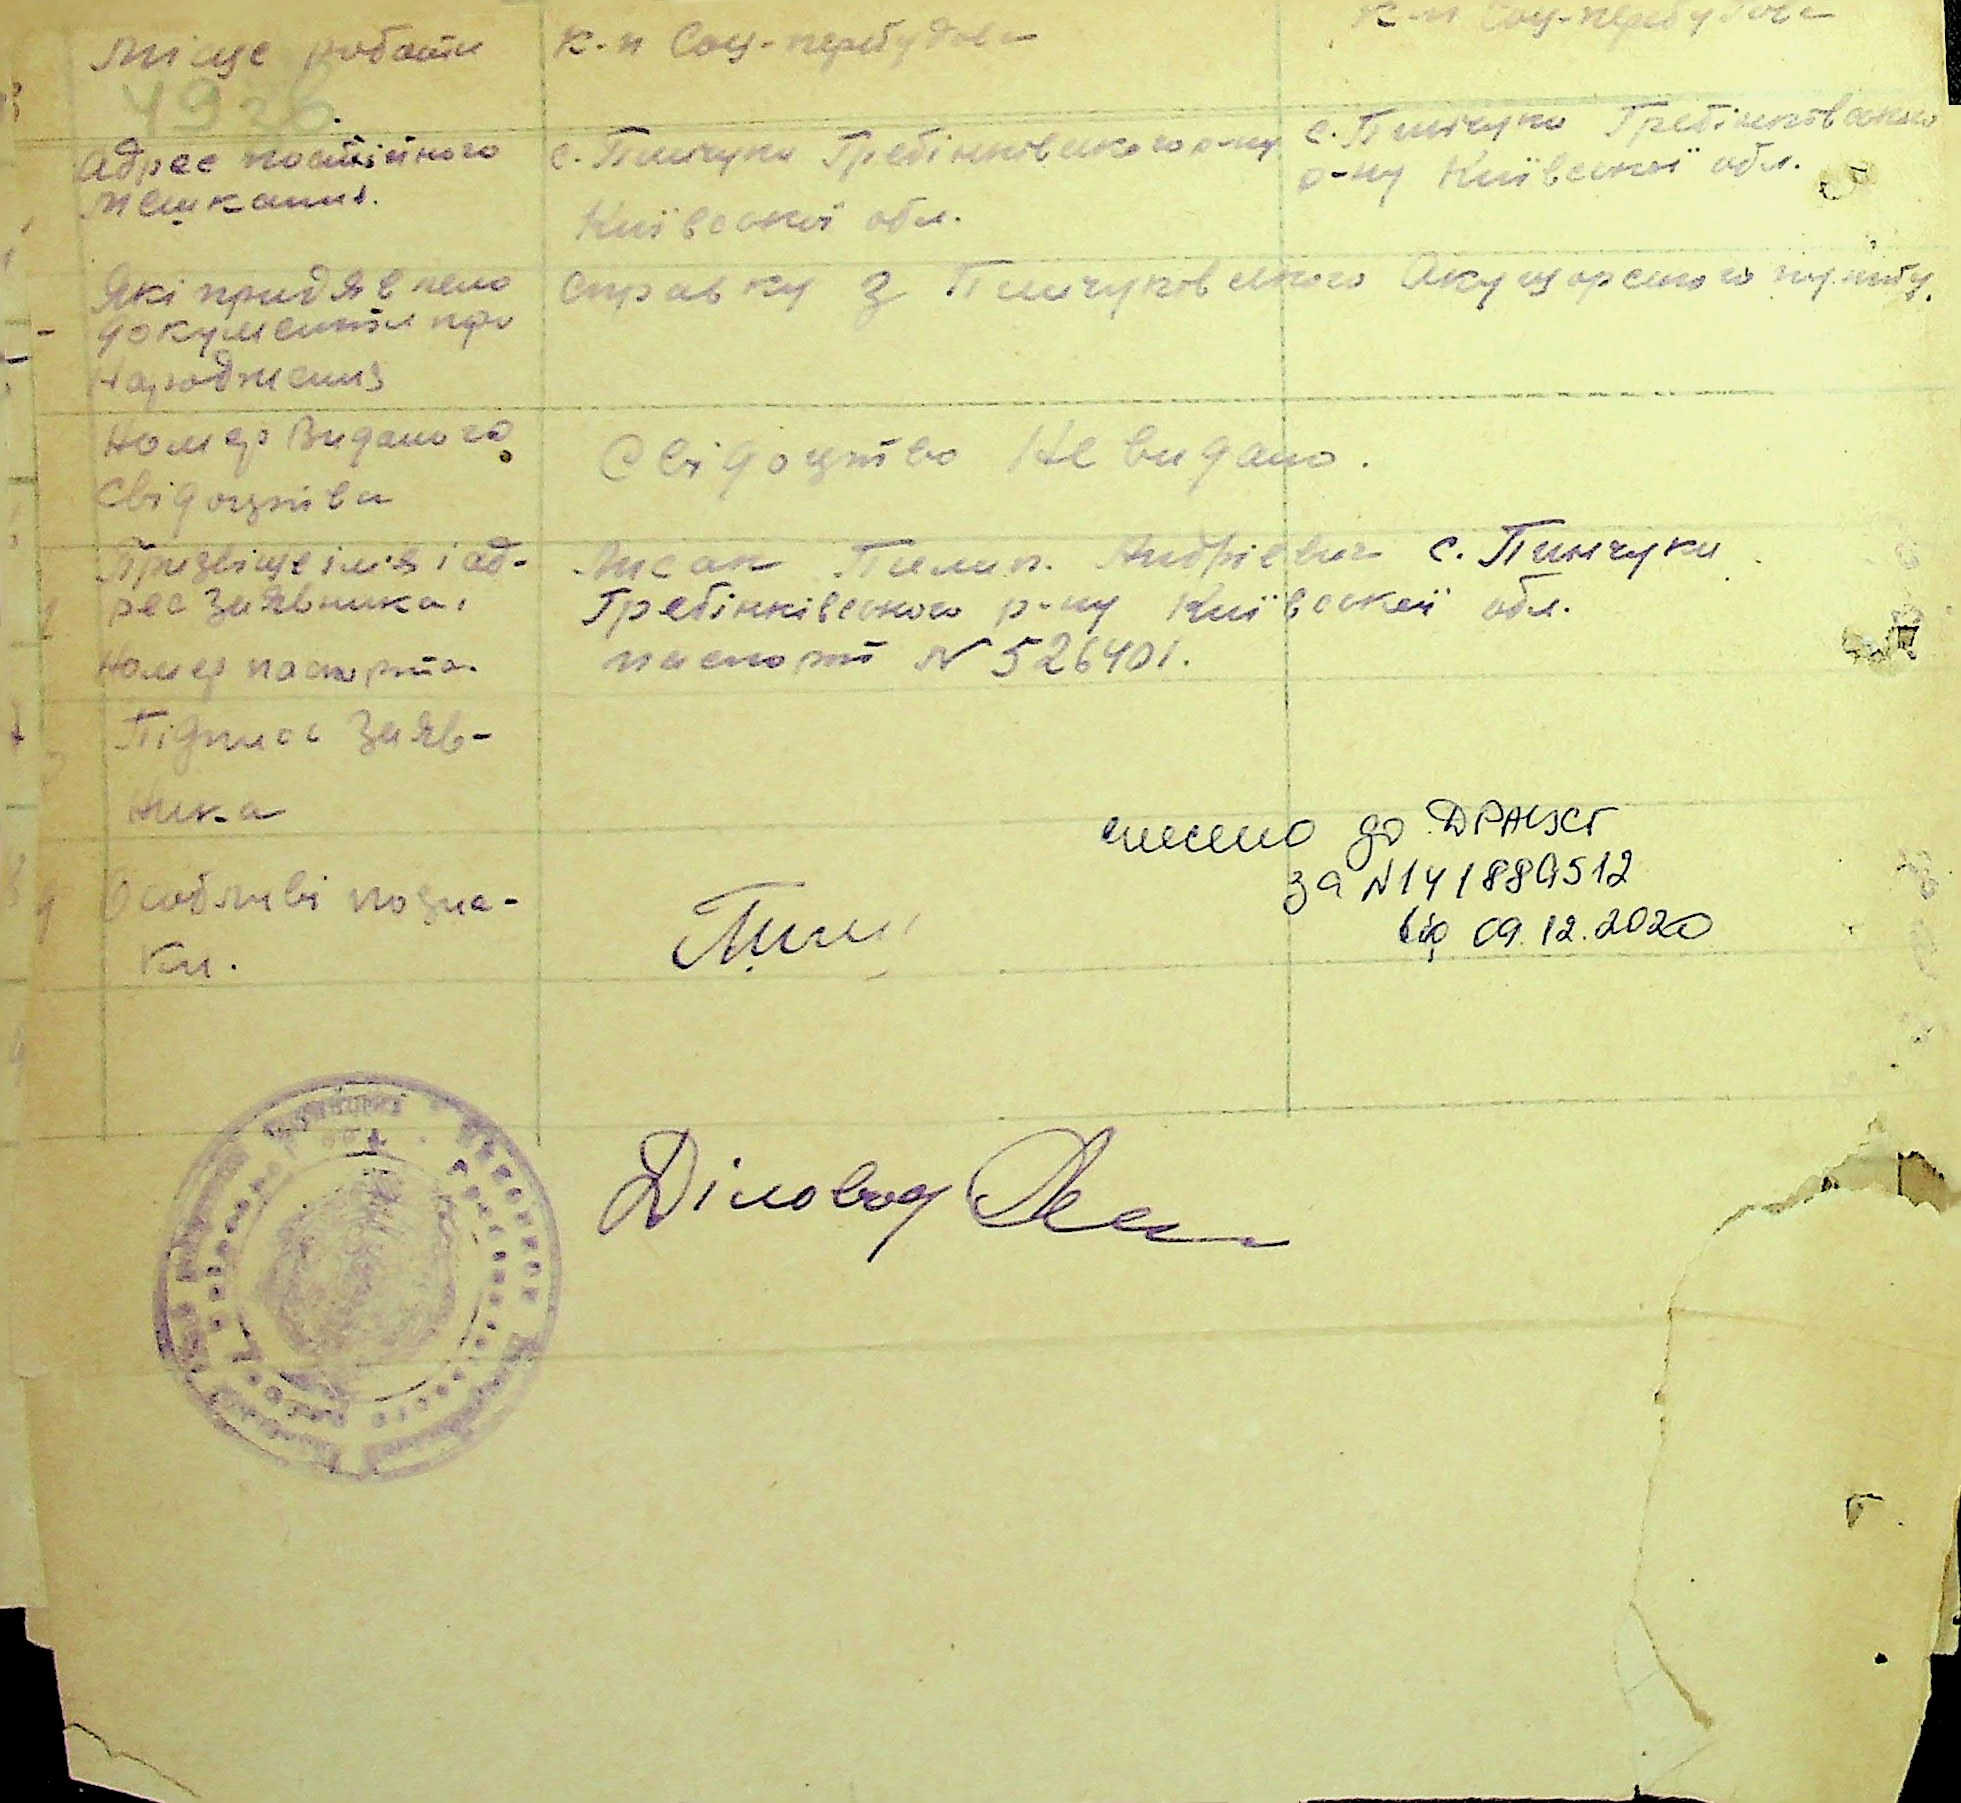 Місце роботи
к-п Соц-перебудова
к-п Соц-перебудова
Адрес постійного
мешкання.
с. Пінчуки Гребінківського р-ну
Київської обл.
с. Пінчуки Гребінківського
р-ну Київської обл.
Які придявлено
документи про
народження
справку з Пінчуковського Акушорського пункту.
Номер виданого
свідоцтва
Свідоцтво не видано.
Призвіще імя і ад-
рес заявника,
Номер паспорта.
Лисак Пилип. Андрієвич с. Пинчуки
Гребінківського р-ну Київської обл.
паспорт N 526401.
Підпис заяв-
ника
Особливі позна-
ки.
внесено до ДРАЦСГ
за N141889512
від 09.12.2020
Діловод